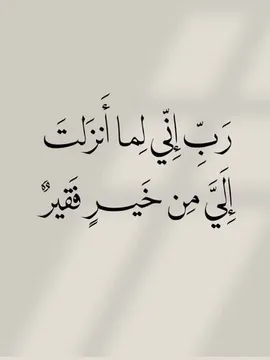 رَبِّ إِنِّي لِما أَنزَلتَ
إِلَيَّ مِن خَيرٍ فَقيرٌ